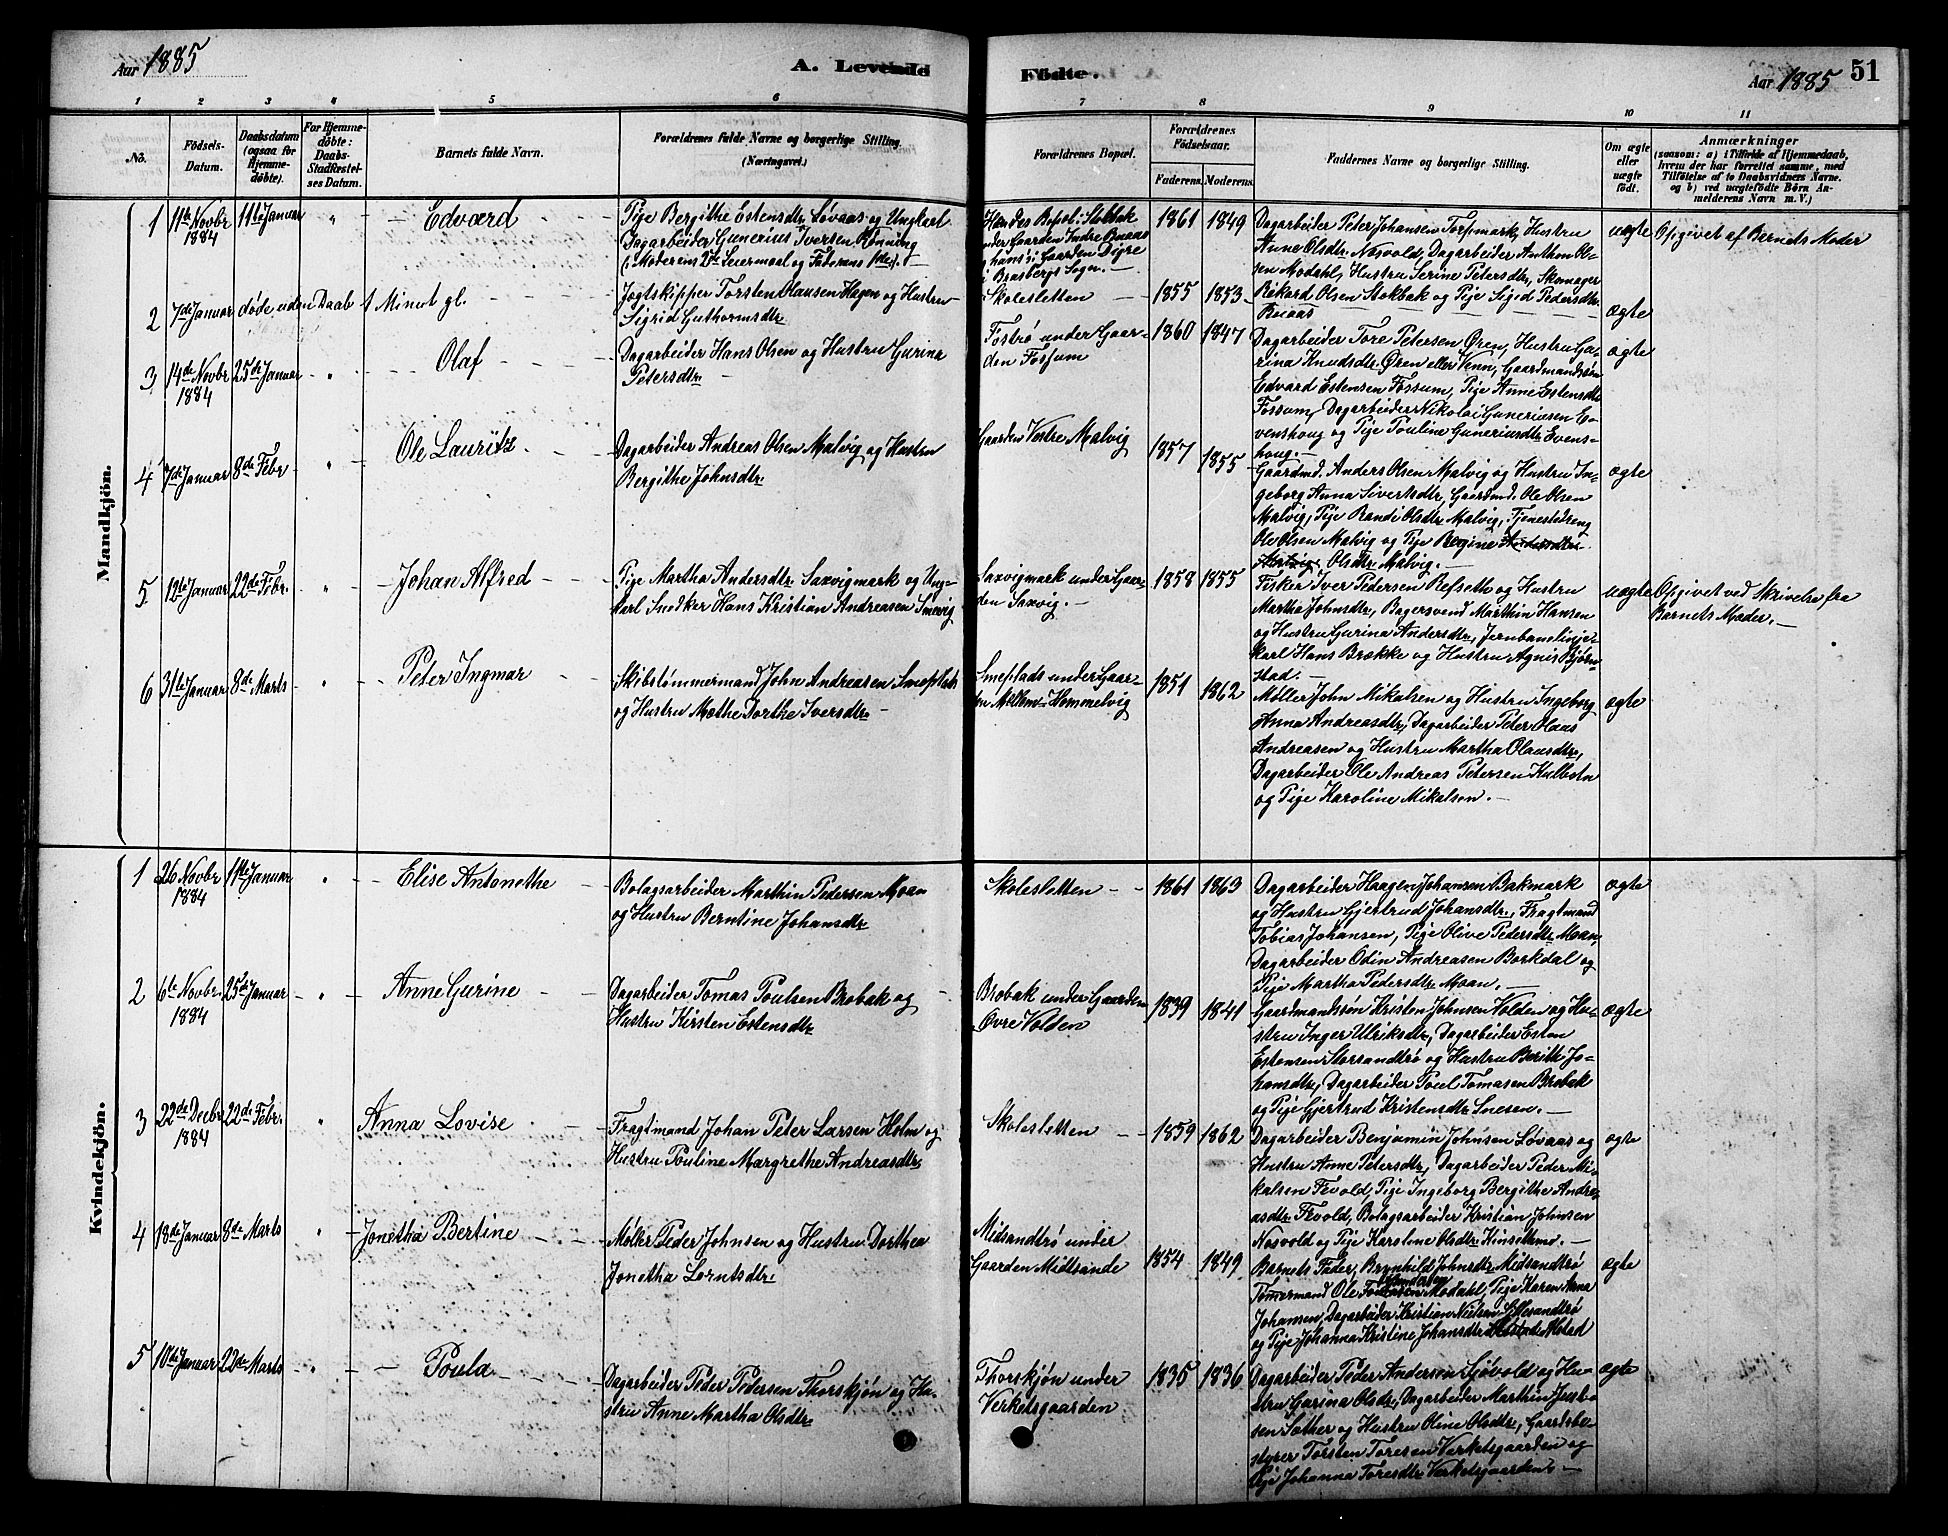 Aar 1885
A. Levende
Födte.
Aar 1885
51
1 2 3 4 5 6 7 8 9 10 11
No.
Födsels-
Datum.
Daabsdatum
(ogsaa for
Hjemme-
döbte).
For Hjemme-
döbte:
Daabs-
Stadfæstel-
ses Datum.
Barnets fulde Navn.
Forældrenes fulde Navne og borgerlige Stilling.
(Næringsvei.)
Forældrenes Bopæl.
Forældrenes
Födselsaar.
Faderens. Moderens.
Faddernes Navne og borgerlige Stilling.
Om ægte
eller
uægte
födt.
Anmærkninger
(saasom: a) i Tilfælde af Hjemmedaab,
hvem der har forrettet samme, med
Tilföielse af to Daabsvidners Navne.
og b) ved uægtefödte Börn An-
melderens Navn m. V.)
Mandkjön.
1
11te Novbr
1884
11te Januar
"
Edværd
Pije Bergithe Estensdtr. Løvaas og Ungkarl
Dagarbeider Gunerius Iversen Rønning
(: Moderens 2det Leiermaal og Faderens 1ste).
Hendes Bopæl: Stokbak
under Gaarden Indre Buaas
og hans: Gaarden Digre
i Braabergs Sogn.
1861
1849
Dagarbeider Peter Johansen Torpmark, Hustru
Anne Olsdtr. Nosvold, Dagarbeider Anthon Ol-
sen Modahl, Hustru Serine Petersdtr, Skomager
Rikard Olsen Stokbak og Pije Sigrid Pedersdtr
Buaas
uægte
Opgivet af Barnets Moder
2
7de Januar
døde uden Daab 1 Minut gl.
Jagtskipper Torsten Olausen Hagen og Hustru
Sigrid Guthormsdtr.
Skolesletten
1855
1853
ægte
3
14de Novbr
1884
25de Januar
"
Olaf
Dagarbeider Hans Olsen og Hustru Gurina
Petersdtr.
Fostrø under Gaar-
den Fossum
1860
1847
Dagarbeider Tore Petersen Øren, Hustru Ga-
rina Knudsdtr. Øren eller Venn, Gaardmandssøn
Edvard Estensen Fossum, Pije Anne Estensdtr
Fossum, Dagarbeider Nikolai Guneriusen E-
venshoug og Pije Pouline Guneriusdtr. Evens-
houg.
ægte
4
7de Januar
8de Febr
"
Ole Lauritz
Dagarbeider Andreas Olsen Malvig og Hustru
Bergithe Johnsdtr.
Gaarden Vestre Malvig
1857
1855
Gaardmd. Anders Olsen Malvig og Hustru In-
geborg Anna Sivertsdtr, Gaardmd. Ole Olsen
Malvig, Pije Randi Olsdtr. Malvig, Tjenestedreng
Ole Olsen Malvig og Pije Regine Andersdtr
Malvig. Olsdtr. Malvig.
ægte
5
12te Januar
22de Febr.
"
Johan Alfred
Pije Martha Andersdtr. Saxvigmark og Ung-
karl Snedker Hans Kristian Andreasen Smevig
Saxvigmark under Gaar-
den Saxvig.
1858
1855
Fisker Iver Pedersen Refseth og Hustru
Martha Johnsdtr, Bagersvend Marthin Hansen
og Hustru Gurina Andersdtr, Jernbanelinje-
karl Hans Brække og Hustru Agnis Bjørn-
stad.
uægte
Opgivet ved Skrivelse fra
Barnets Moder.
6
31te Januar
8de Marts
"
Peter Ingmar
Skibstømmermand John Andreasen Smeplads
og Hustru Mathe Dorthe Iversdtr.
Smeplads under Gaar-
den Mellem Hommelvig
1851
1862
Møller John Mikalsen og Hustru Ingeborg
Anna Andreasdtr, Dagarbeider Peter Olaus
Andreasen og Hustru Martha Olausdtr,
Dagarbeider Ole Andreas Petersen Kulbotn
og Pije Karoline Mikalsen.
ægte
Kvindekjön.
1
26 Novbr
1884
11te Januar
"
Elise Antonethe
Bolagsarbeider Marthin Pedersen Moan
og Hustru Berntine Johansdtr
Skolesletten
1861
1863
Dagarbeider Haagen Johansen Bakmark
og Hustru Gjertrud Johansdtr, Fragtmand
Tobias Johansen, Pije Olive Pedersdtr. Moan,
Dagarbeider Odin Andreasen Borkdal og
Pije Martha Pedersdtr. Moan.
ægte
2
6te Novbr.
1884
25de Januar
"
Anne Gurine
Dagarbeider Tomas Poulsen Brobak og
Hustru Kirsten Estensdtr
Brobak under Gaarden
Øvre Volden
1839
1841
Gaardmandssøn Kristen Johnsen Volden og Hu-
stru Inger Ulriksdtr, Dagarbeider Esten
Estensen Storsandtrø og Hustru Berith Jo-
hansdtr, Dagarbeider Poul Tomasen Brobak
og Pije Gjertrud Kristensdtr. Snesen.
ægte
3
22de Decbr
1884
22de Febr.
"
Anna Lovise
Fragtmand Johan Peter Larsen Holm og
Hustru Pouline Margrethe Andreasdtr.
Skolesletten
1859
1862
Dagarbeider Benjamin Johnsen Løvaas og
Hustru Anne Petersdtr, Dagarbeider Peder Mi-
kalsen Fevold, Pije Ingeborg Bergithe Andre-
asdtr. Fevold, Bolagsarbeider Kristian Johnsen
Nosvold og Pije Karoline Olsdtr. Kinsethmo.
ægte
4
18de Januar
8de Marts
"
Jonetha Bertine
Møller Peder Johnsen og Hustru Dorthea
Jonetha Lorntsdtr.
Midsandtrø under
Gaarden Midtsande
1854
1849
Barnets Fader, Brynhild Johnsdtr. Midsandtrø
Tømermand Ole Modahl, Pije Karen Anna
Johansen, Dagarbeider Kristian Nielsen Gillesandtrø
og Pije Johanna Kristine Johansdtr. Mostad
ægte
5
10de Januar
22de Marts
"
Poula
Dagarbeider Peder Pedersen Thorskjøn og Hu-
stru Anne Martha Olsdtr.
Thorskjøn under
Verketsgaarden
1835
1836
Dagarbeider Peder Andersen Sjøvold og Hu-
stru Gurina Olsdtr, Dagarbeider Marthin Jakob-
sen Sather og Hustru Oline Olsdtr, Gaardbe-
styrer Torsten Toresen Verketsgaarden og
Pije Johanna Toresdtr. Verketsgaarden.
ægte